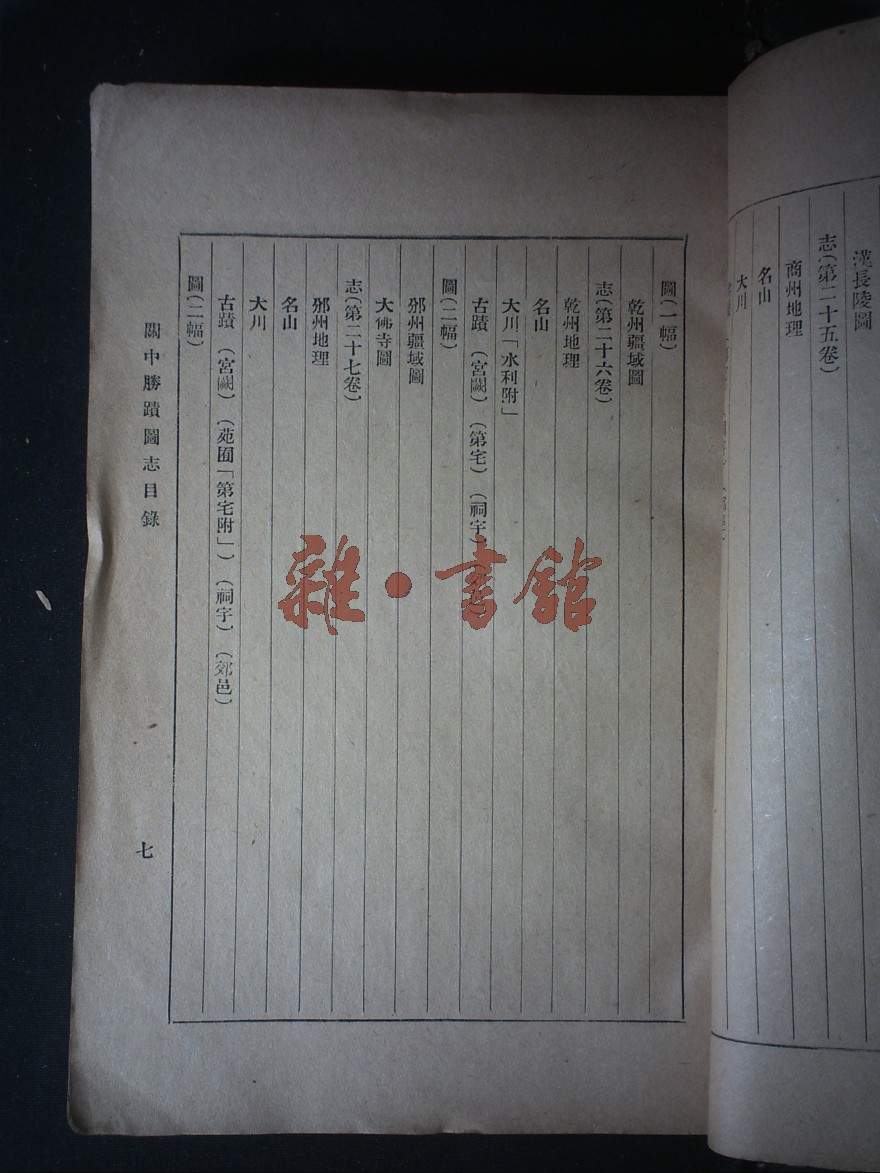 漢長陵圖
志(第二十五卷)
商州地理
名山
大川
圖(一幅)
乾州疆域圖
志(第二十六卷)
乾州地理
名山
大川「水利附」
古蹟 (宮闕) (第宅) (祠宇)
圖(二幅)
邠州疆域圖
大佛寺圖
志(第二十七卷)
邠州地理
名山
大川
古蹟 (宮闕) (苑囿「第宅附」) (祠宇) (郊邑)
圖(二幅)
關中勝蹟圖志目錄
七
雜·書館